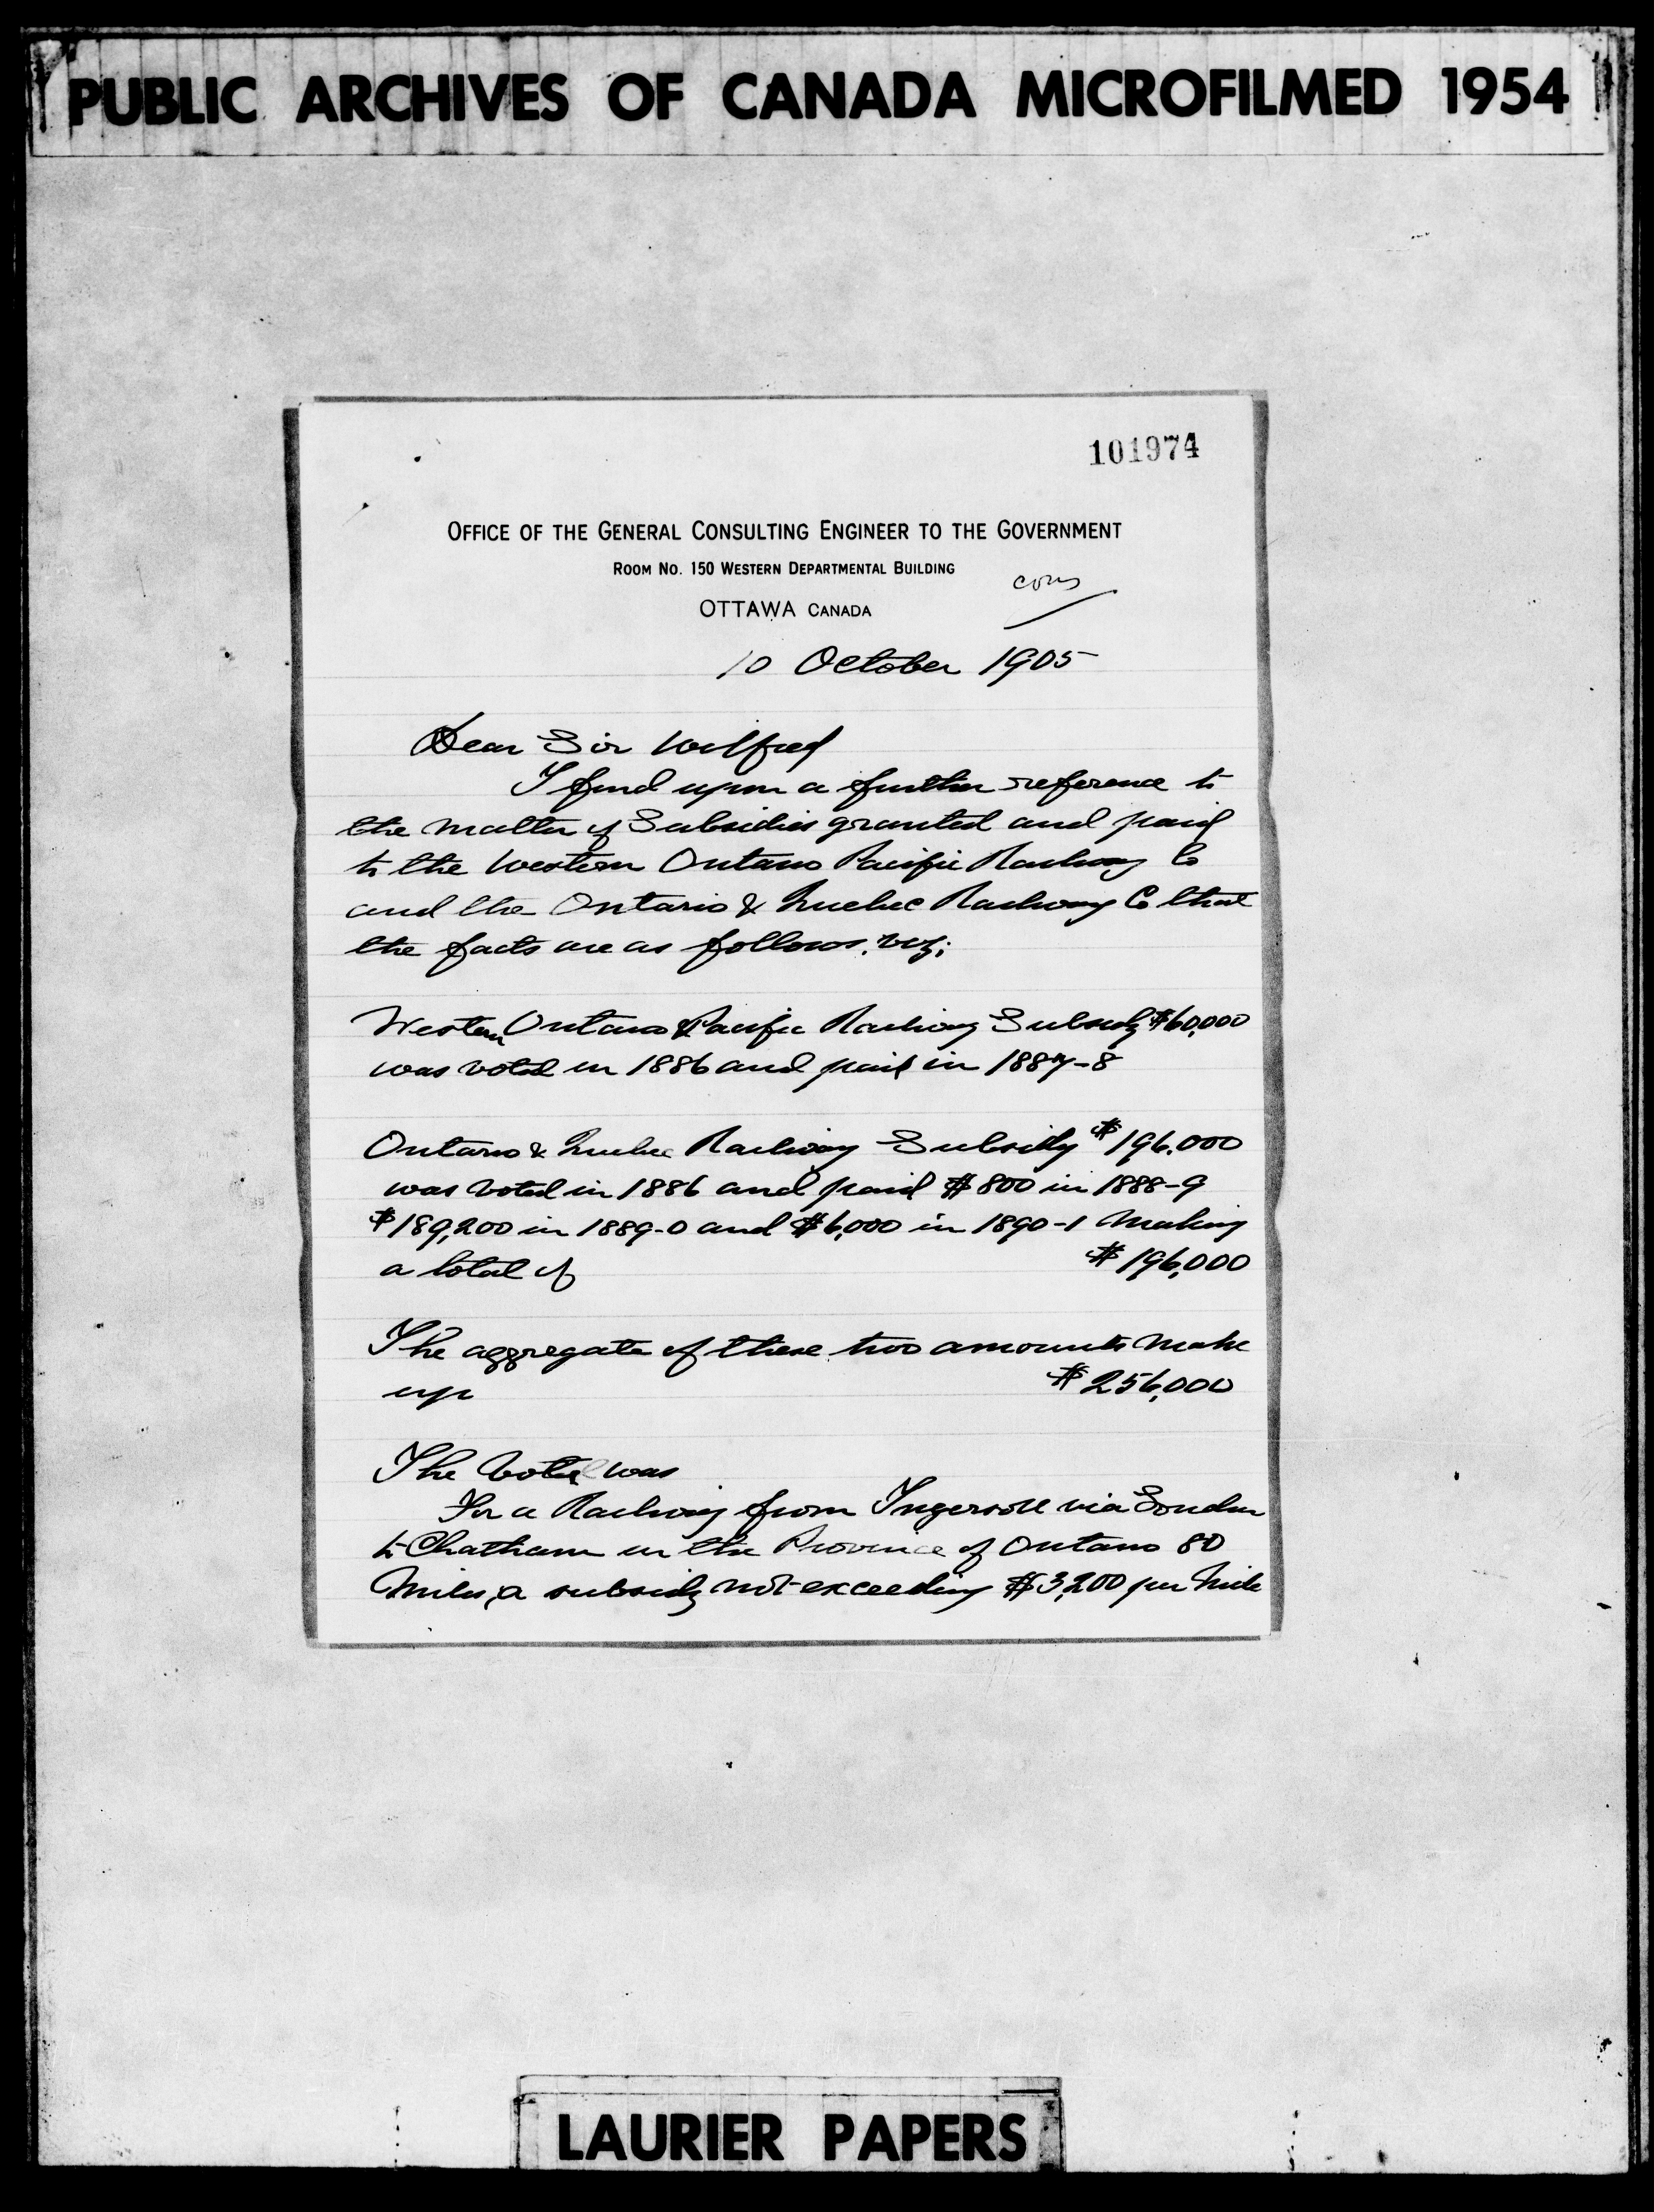 PUBLIC ARCHIVES OF CANADA MICROFILMED 1954
101974
OFFICE OF THE GENERAL CONSULTING ENGINEER TO THE GOVERNMENT
ROOM NO. 150 WESTERN DEPARTMENTAL BUILDING
OTTAWA CANADA
10 October 1905
Dear Sir Wilfred
I find upon a further reference to
the matter of Subsidies granted and paid
to the Western Ontario Pacific Railway Co
and the Ontario & Quebec Railway Co that
the facts are as follows, viz;
Western Ontario & Pacific Railway Subsidy $60,000
was voted in 1886 and paid in 1887-8
Ontario & Quebec Railway Subsidy $196.000
was voted in 1886 and paid $800 in 1888-9
$189,200 in 1889-0 and $6,000 in 1890-1 Making
a total of $196,000
The aggregate of these two amounts make
up $256,000
The Vote was
For a Railway from Ingersoll via London
to Chatham in the Province of Ontario 80
Miles, a subsidy not exceeding $3,200 per Mile
LAURIER PAPERS